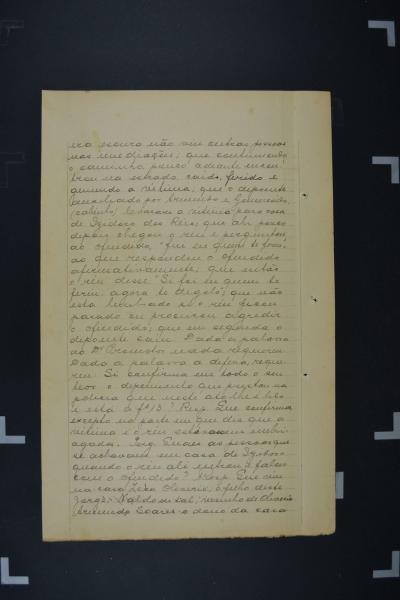 era escuro não viu outras pessoas
nas immediações; que continuando
o caminho pouco adiante encon
trou na estrada caido, ferido e
gemendo a victima; que o depoente
auxiliado por Arminto e
levaram a victima para casa
de Izidoro dos Reis; que ahi pouco
depois chegou o reu e perguntou
ao offendido, "fui eu quem te furou,
ao que respondeu o offendido
affirmativamente; que então
o reu disse "Si fui eu quem te
feriu agora te degolo"; que não
esta lembrado si o reu ficou
parado ou procurou agredir
o offendido; que em seguida o
depoente saiu. Dada a palavra
ao Dr Promotor nada requereu
Dada a palavra a defesa, reque
reu Si confirma em todo o seu
teor o depoimento que prestou na
policia que neste acto lhe é lido
e está á fls 13? Resp. Que confirma
excepto na parte em que diz que a
victima e o reu estavam embri
agados. Perg. Quaes as pessoas que
se achavam em casa de Izidoro
quando o reu ali entrou a falar
com o offendido? Resp. Que viu
na casa Zeca Oliverio, o filho deste
Jorge, Valdo de tal; visinho de Oliverio
Arminto Soares o dono da casa